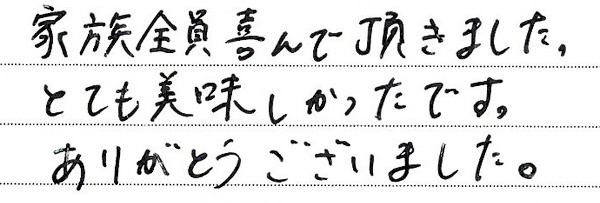 家族全員喜んで頂きました,
とても美味しかったです。
ありがとうございました。